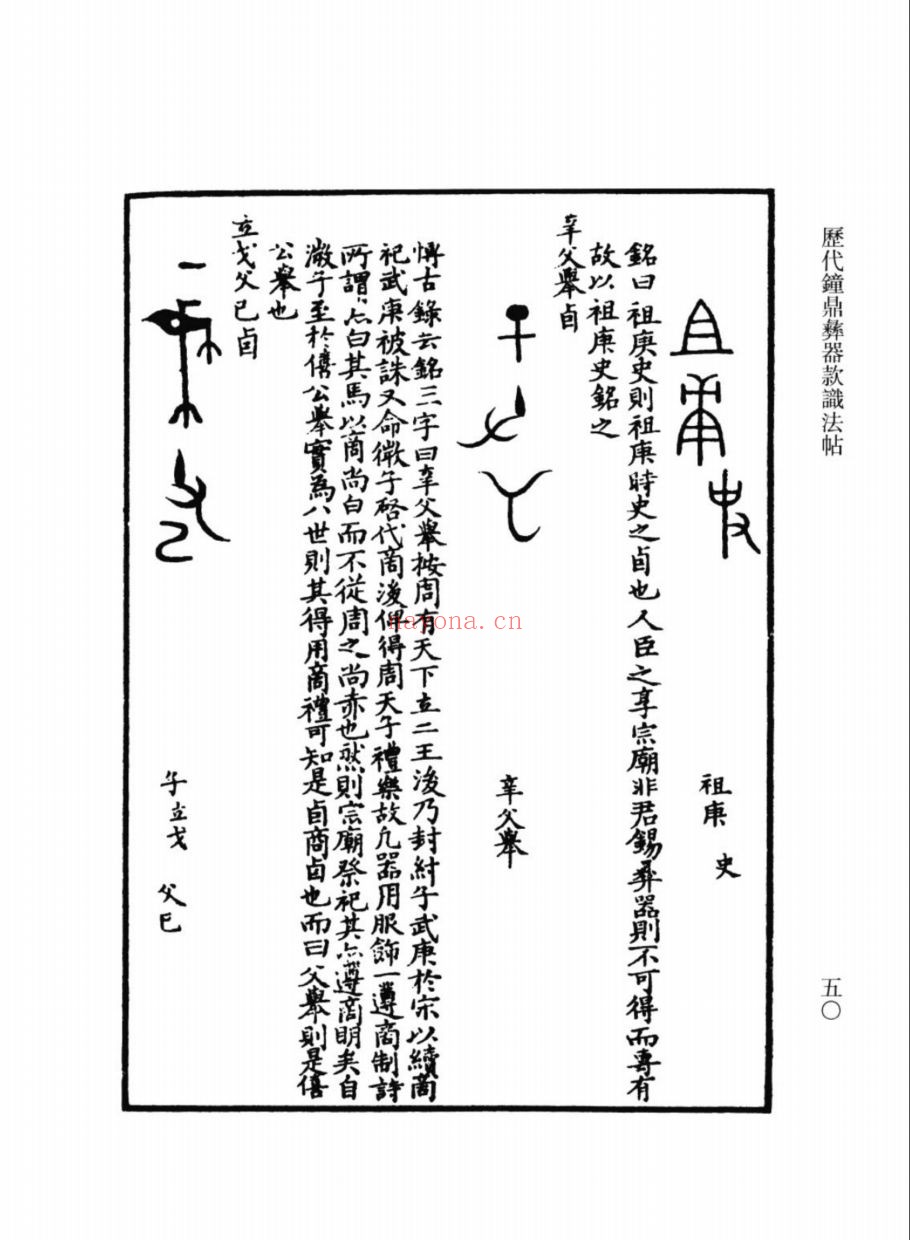 歷代鐘鼎彝器款識法帖
五〇
祖庚 史
銘曰祖庚史則祖庚時史之卣也人臣之享宗廟非君錫彝器則不可得而專有
故以祖庚史銘之
辛父舉卣
辛父舉
愽古錄云銘三字曰辛父舉按周有天下立二王後乃封紂子武庚於宋以續商
祀武庚被誅又命微子啓代商後俾得周天子禮樂故凡器用服飾一遵商制詩
所謂亦白其馬以商尚白而不從周之尚赤也然則宗廟祭祀其亦遵商明矣自
微子至於僖公舉實爲八世則其得用商禮可知是卣商卣也而曰父舉則是僖
公舉也
立戈父巳卣
子立戈 父巳
nayona.cn